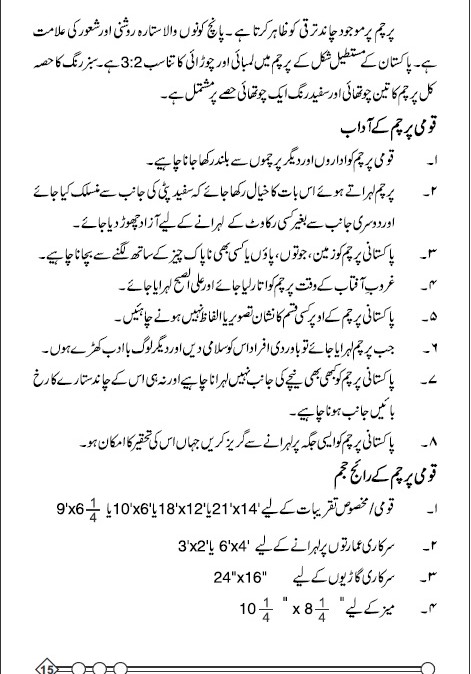 پرچم پر موجود چاند ترقی کو ظاہر کرتا ہے۔ پانچ کونوں والا ستارہ روشنی اور شعور کی علامت
ہے۔ پاکستان کے مستطیل شکل کے پرچم میں لمبائی اور چوڑائی کا تناسب 3:2 ہے۔ سبز رنگ کا حصہ
کل پرچم کا تین چوتھائی اور سفید رنگ ایک چوتھائی حصے پر مشتمل ہے۔
قومی پرچم کے آداب
۱۔ قومی پرچم کو اداروں اور دیگر پرچموں سے بلند رکھا جانا چاہیے۔
۲۔ پرچم لہراتے ہوئے اس بات کا خیال رکھا جائے کہ سفید پٹی کی جانب سے منسلک کیا جائے
اور دوسری جانب سے بغیر کسی رکاوٹ کے لہرانے کے لیے آزاد چھوڑ دیا جائے۔
۳۔ پاکستانی پرچم کو زمین، جوتوں، پاؤں یا کسی بھی ناپاک چیز کے ساتھ لگنے سے بچانا چاہیے۔
۴۔ غروبِ آفتاب کے وقت پرچم کو اتار لیا جائے اور علی الصبح لہرایا جائے۔
۵۔ پاکستانی پرچم کے اوپر کسی قسم کا نشان تصویر یا الفاظ نہیں ہونے چاہئیں۔
۶۔ جب پرچم لہرایا جائے تو باوردی افراد اس کو سلامی دیں اور دیگر لوگ باادب کھڑے ہوں۔
۷۔ پاکستانی پرچم کو کبھی بھی نیچے کی جانب نہیں لہرانا چاہیے اور نہ ہی اس کے چاند ستارے کا رخ
بائیں جانب ہونا چاہیے۔
۸۔ پاکستانی پرچم کو ایسی جگہ پر لہرانے سے گریز کریں جہاں اس کی تحقیر کا امکان ہو۔
قومی پرچم کے رائج حجم
۱۔ قومی/مخصوص تقریبات کے لیے 21'x14' یا 18'x12' یا 10'x6' یا 9'x6 1/4
۲۔ سرکاری عمارتوں پر لہرانے کے لیے 6'x4' یا 3'x2'
۳۔ سرکاری گاڑیوں کے لیے 24"x16"
۴۔ میز کے لیے 10 1/4 " x 8 1/4 "
15